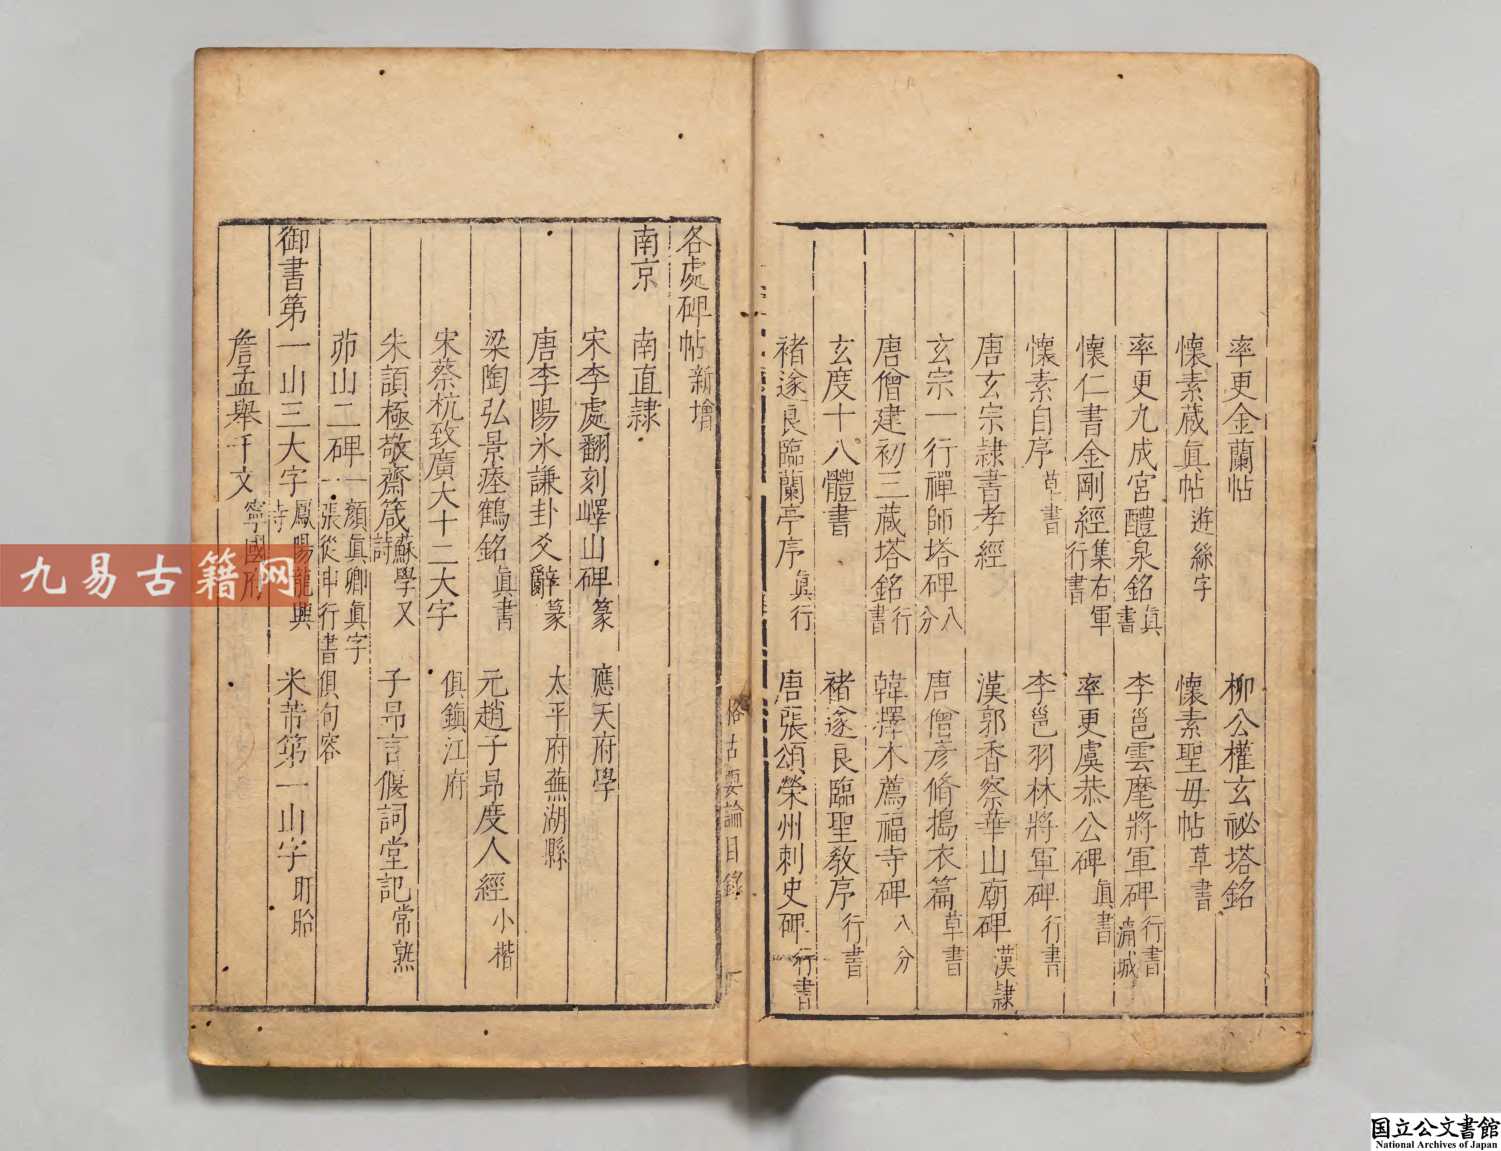 率更金蘭帖 柳公權玄祕塔銘
懷素藏眞帖 遊絲字 懷素聖母帖 草書
率更九成宮醴泉銘 眞書 李邕雲麾將軍碑 行書 蒲城
懷仁書金剛經 集右軍行書 率更虞恭公碑 眞書
懷素自序 草書 李邕羽林將軍碑 行書
唐玄宗隷書孝經 漢郭香察華山廟碑 漢隷
玄宗一行禪師塔碑 八分 唐僧彦脩搗衣篇 草書
唐僧建初三藏塔銘 行書 韓擇木薦福寺碑 八分
玄度十八體書 褚遂良臨聖教序 行書
褚遂良臨蘭亭序 眞行 唐張頌榮州刺史碑 行書
格古要論目錄
各處碑帖 新增
南京 南直隷
宋李處翻刻嶧山碑 篆 應天府學
唐李陽氷謙卦爻辭 篆 太平府蕪湖縣
梁陶弘景瘞鶴銘 眞書 元趙子昻度人經 小楷
宋蔡杭致廣大十二大字 俱鎮江府
朱頤極敬齋箴 蘇學又詩 子昻言偃詞堂記 常熟
茆山二碑 一顔眞卿眞字 一張從申行書 俱句容
御書第一山三大字 鳳陽龍興寺 米芾第一山字 盱眙
詹孟舉千文 寧國府
九易古籍网
国立公文書館
National Archives of Japan